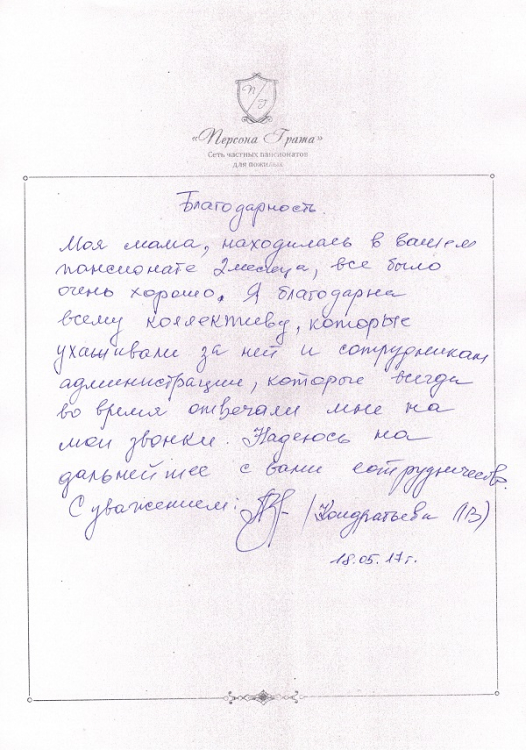 П/Г
«Персона Грата»
Сеть частных пансионатов
для пожилых
Благодарность.
Моя мама, находилась в вашем
пансионате 2 месяца, все было
очень хорошо. Я благодарна
всему коллективу, которые
ухаживали за ней и сотрудникам
администрации, которые всегда
во время отвечали мне на
мои звонки. Надеюсь на
дальнейшее с вами сотрудничество.
С уважением: /Кондратьева
18.05.17г.